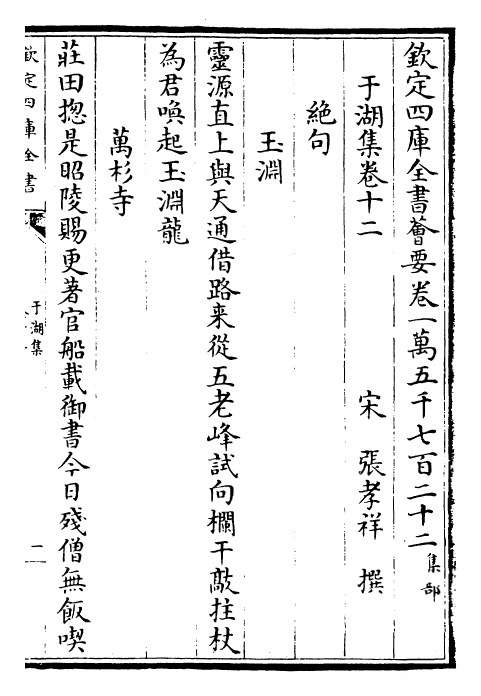 欽定四庫全書薈要卷一萬五千七百二十二集部
于湖集卷十二　　宋　張孝祥　撰
絶句
玉淵
靈源直上與天通借路来從五老峰試向欄干敲拄杖
為君喚起玉淵龍
萬杉寺
莊田揔是昭陵賜更著官船載御書今日殘僧無飯喫
欽定四庫全書
于湖集
一